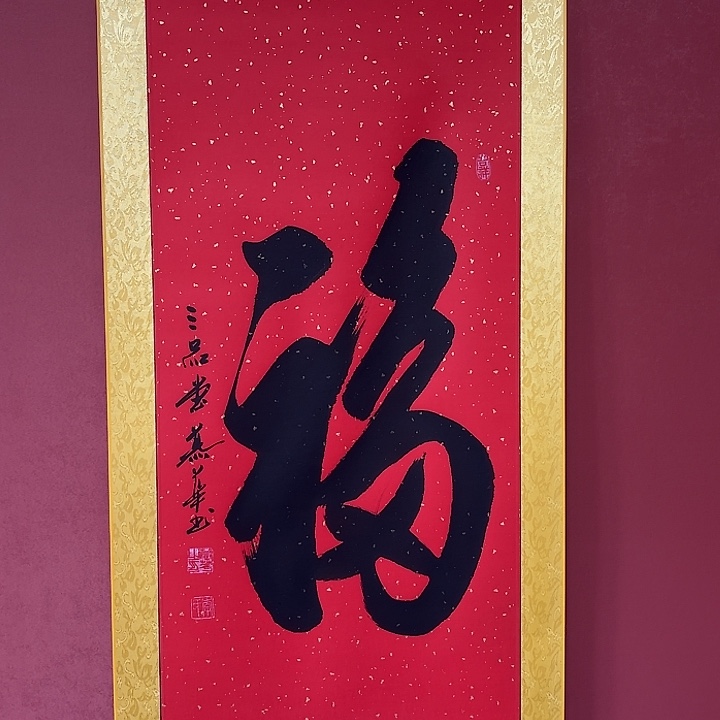 福
三品堂燕華书